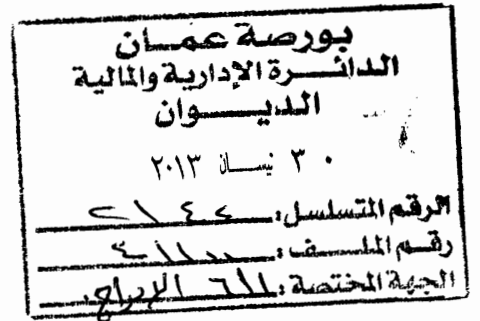 بورصة عمان
الدائرة الإدارية والمالية
الديوان
٣٠ نيسان ٢٠١٣
الرقم المتسلسل:
رقم الملف:
الجهة المختصة: الإدراج